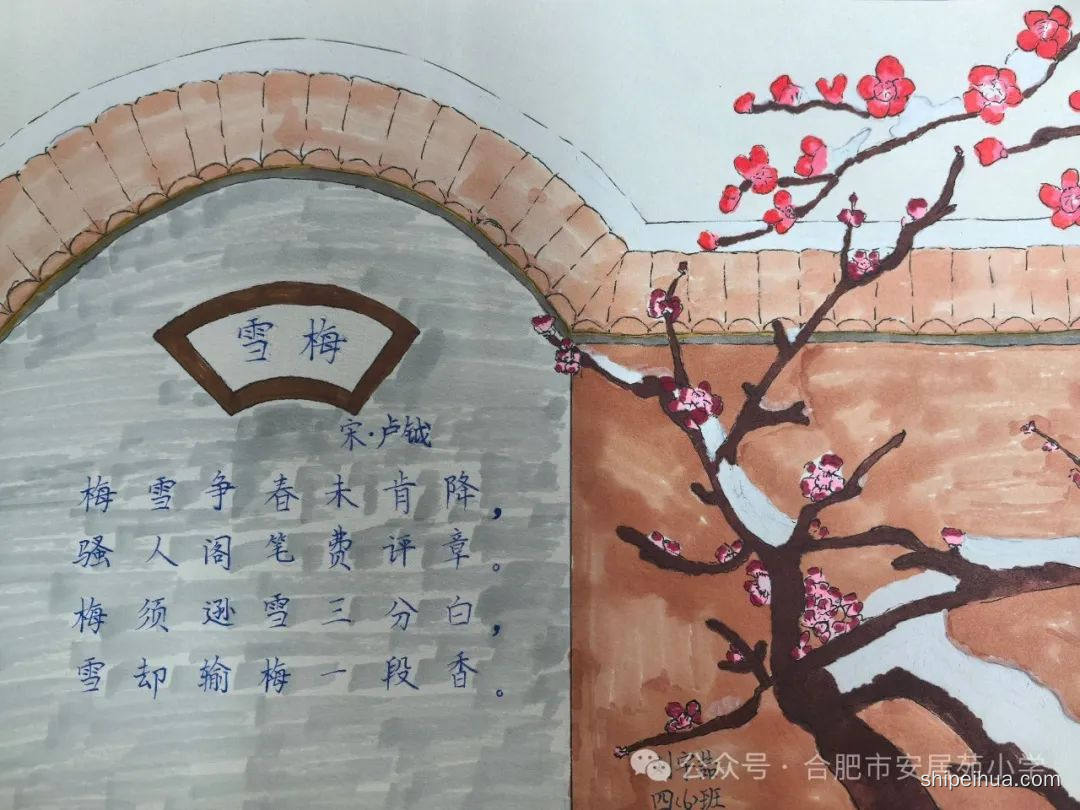 雪梅
宋·卢钺
梅雪争春未肯降，
骚人阁笔费评章。
梅须逊雪三分白，
雪却输梅一段香。
公众号·合肥市安居苑小学
shipeihua.com
四(6)班